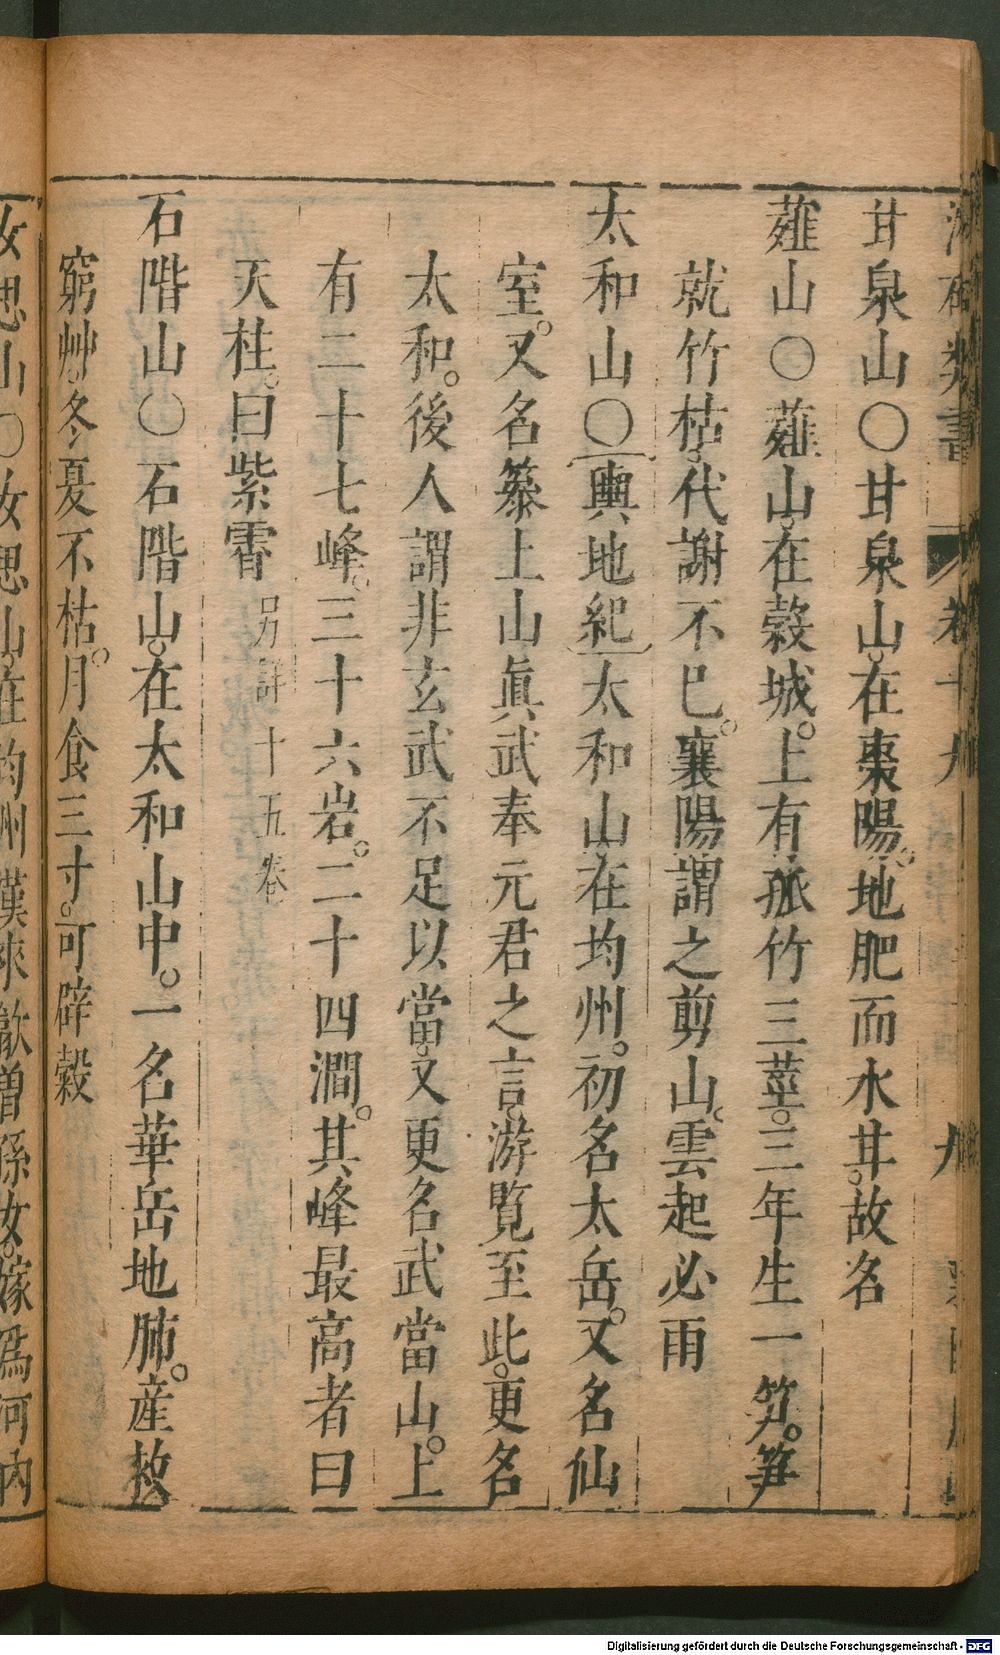 甘泉山〇甘泉山。在棗陽。地肥而水甘。故名
薤山〇薤山。在穀城。上有孤竹三莖。三年生一笋。笋
就竹枯。代謝不已。襄陽謂之剪山。雲起必雨
太和山〇輿地紀太和山。在均州。初名太岳。又名仙
室。又名篸上山眞武奉元君之言。游覧至此。更名
太和。後人謂非玄武不足以當。又更名武當山。上
有二十七峰。三十六岩。二十四澗。其峰最高者曰
天柱。曰紫霄 另詳十五卷
石階山〇石階山。在太和山中。一名華岳地肺。産救
窮艸。冬夏不枯。月食三寸。可辟穀
女思山〇女思山。在均州漢
Digitalisierung gefördert durch die Deutsche Forschungsgemeinschaft - DFG